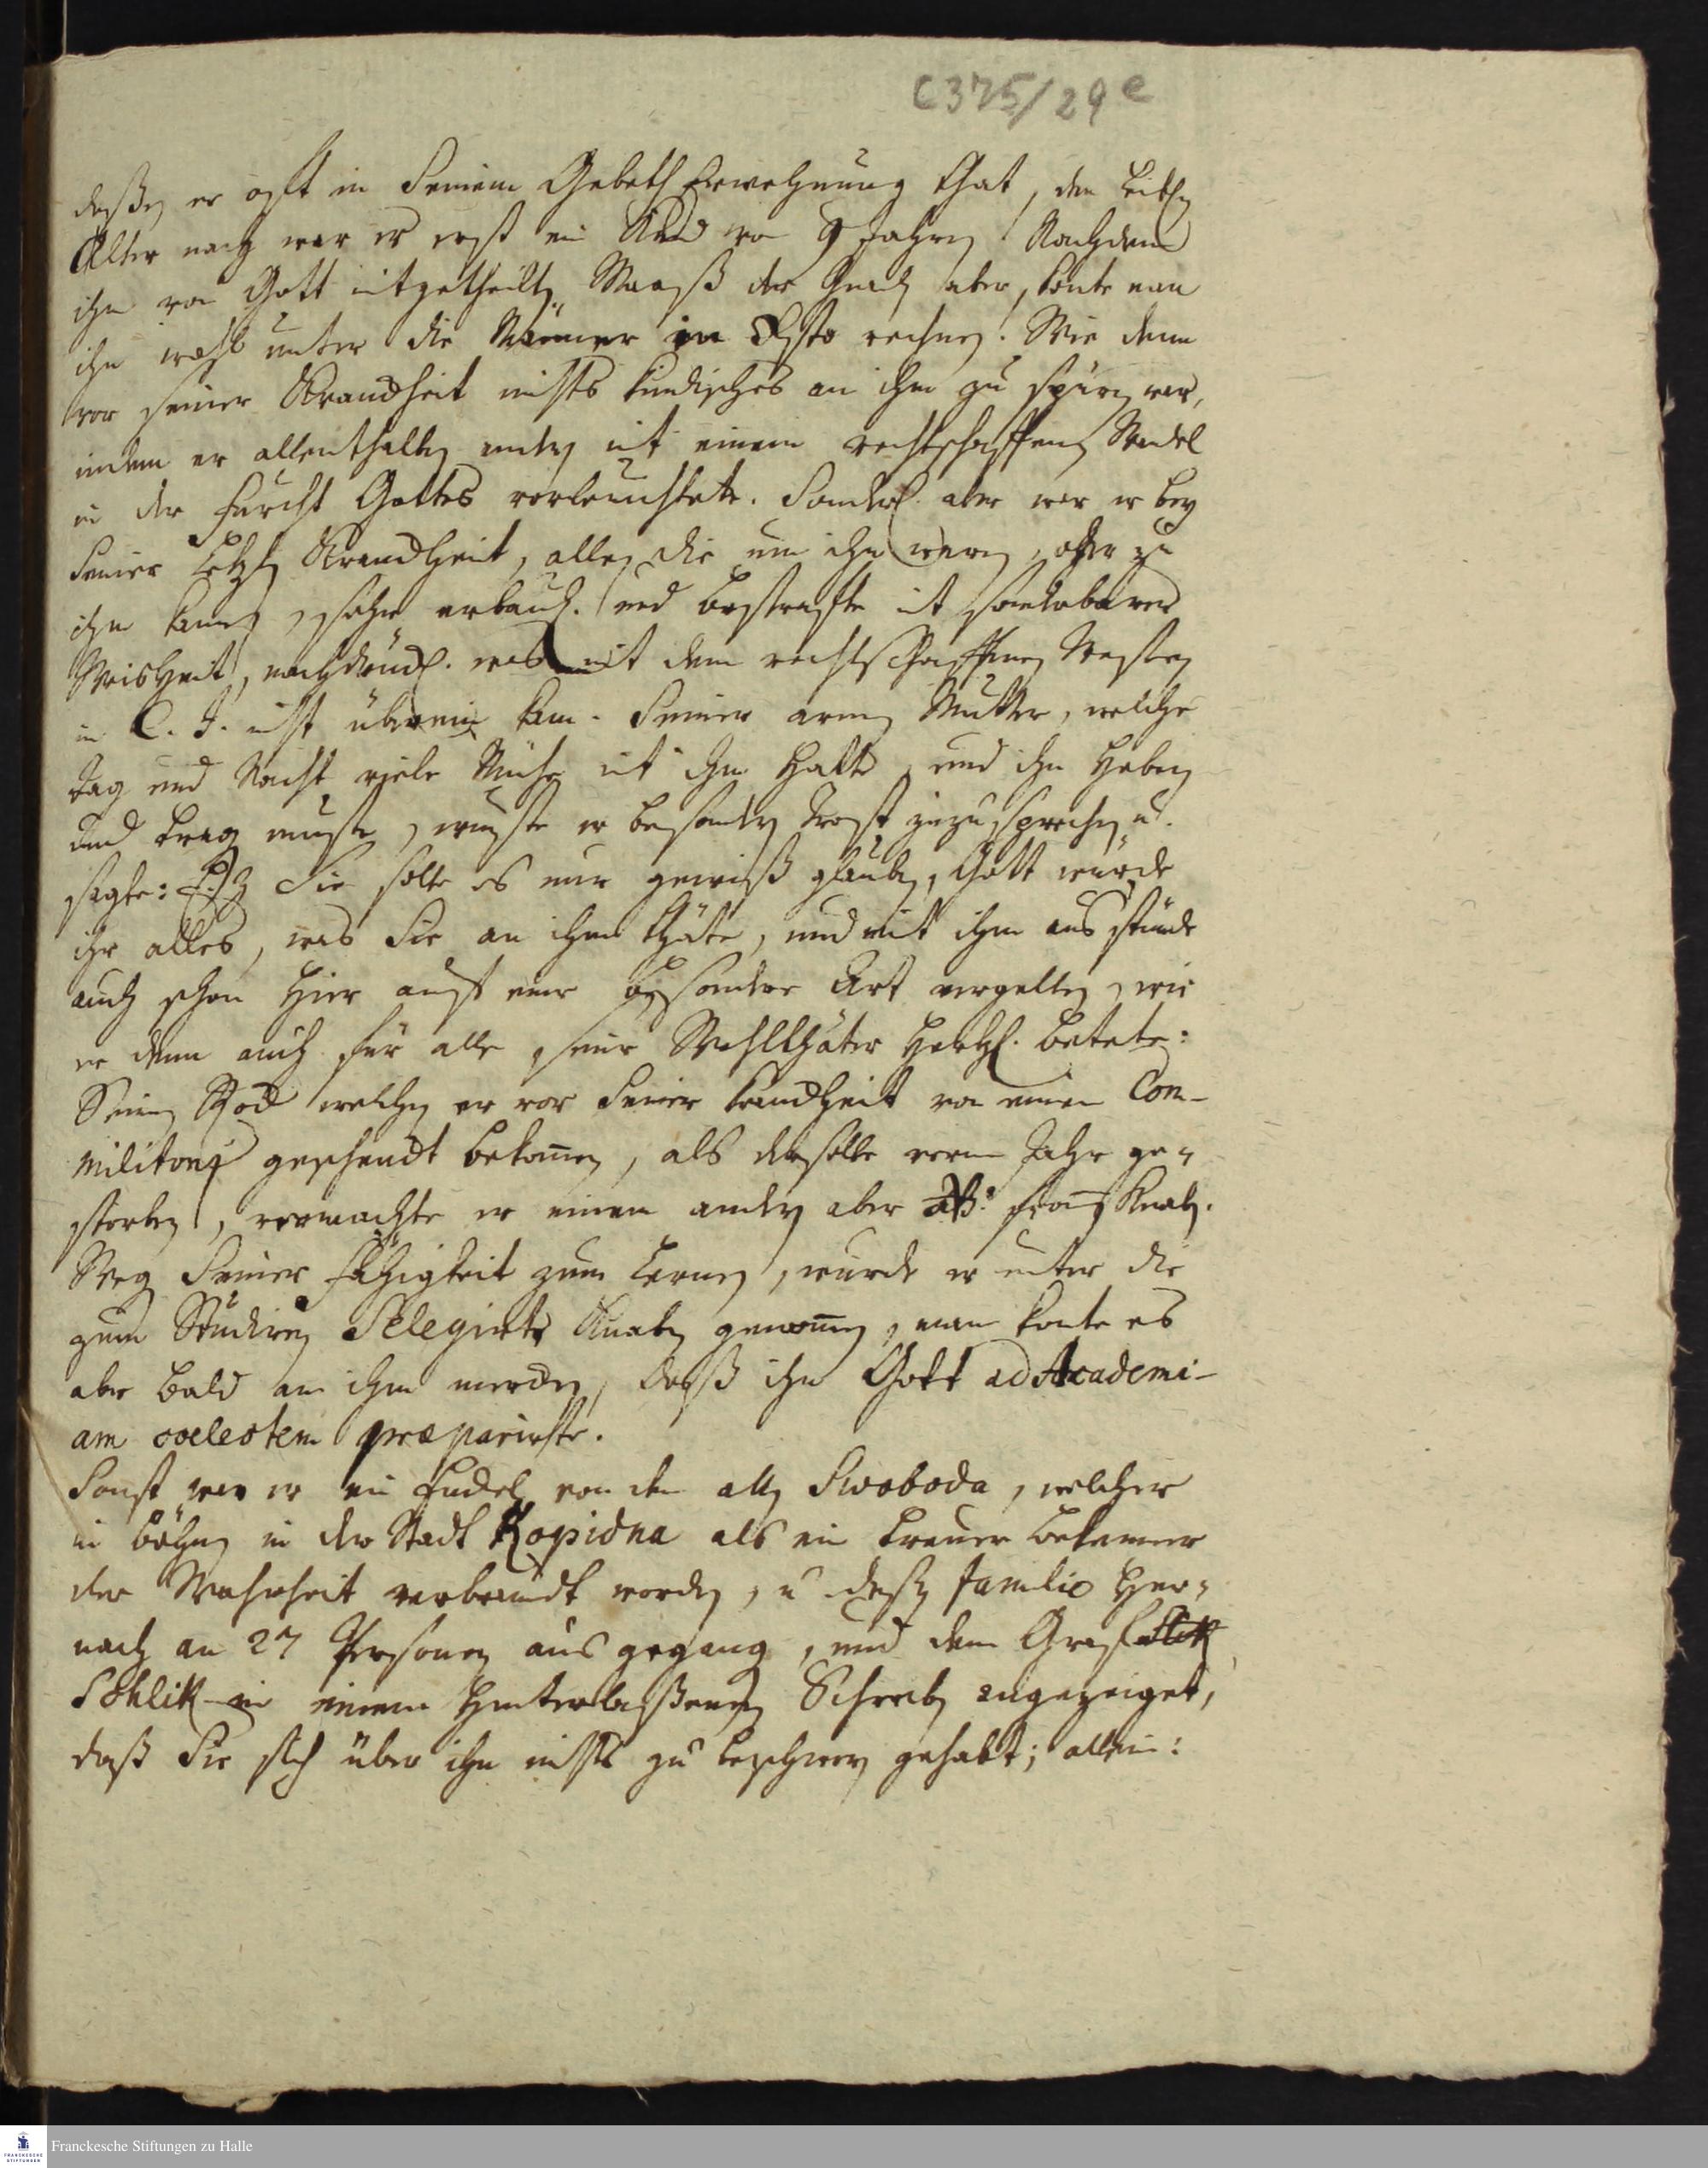 C375/29 e
deßen er oft in Seinem Gebeth Erwehnung that, dem Leibl.
Alter nach war er erst ein Kind von 9 Jahren. Nach dem
ihm von Gott mitgetheilten Maaß der Gnade aber, konte man
ihn wohl unter die Männer in Christo rechnen. Wie denn
vor seiner Kranckheit nichts kindisches an ihm zu spüren war,
indem er allenthalben andern mit einem rechtschaffenen Wandel
in der Furcht Gottes vorleuchtete. Sonderl. aber war er bey
Seiner Letzten Kranckheit, allen die um ihn waren, oder zu
ihm kamen, sehr erbaul. und bestrafte mit sonderbarer
Weisheit, nachdrückl. was mit dem rechtschaffenen Wesen
in C. J. nicht überein kam. Seiner armen Mutter, welche
Tag und Nacht viele Mühe mit ihm hatte, und ihn heben
und tragen muste, wuste er besonders Trost zuzusprechen u.
sagte: Sie solte es nur gewiß glauben, Gott würde
ihr alles, was Sie an ihm thäte, und mit ihm ausstünde
auch schon hier auf eine besondere Art vergelten, wie
er denn auch für alle seine Wohlthäter hertzl. betete:
Seinen Rock welchen er vor Seiner Kranckheit von einem Com-
militonen geschenckt bekommen, als derselbe vorm Jahr ge-
storben, vermachte er einem andern aber from̄en Knaben.
Wegen Seiner Fähigkeit zum Lernen, wurde er unter die
zum Studiren Selegirte Knaben genom̄en, man konte es
aber bald an ihm mercken, daß ihn Gott ad Academi-
am coelestem præparirte.
Sonst war er ein Enckel von dem alten Swoboda, welcher
in Böhmen in der Stadt Kopidna als ein treuer Bekenner
der Wahrheit verbrandt worden, u. deßen Familie her-
nach an 27 Personen ausgegangen, und dem Grafen
Schlik in einem hinterlaßenen Schreiben angezeiget,
daß Sie sich über ihn nichts zu beschweren gehabt; allein:
Franckesche Stiftungen zu Halle